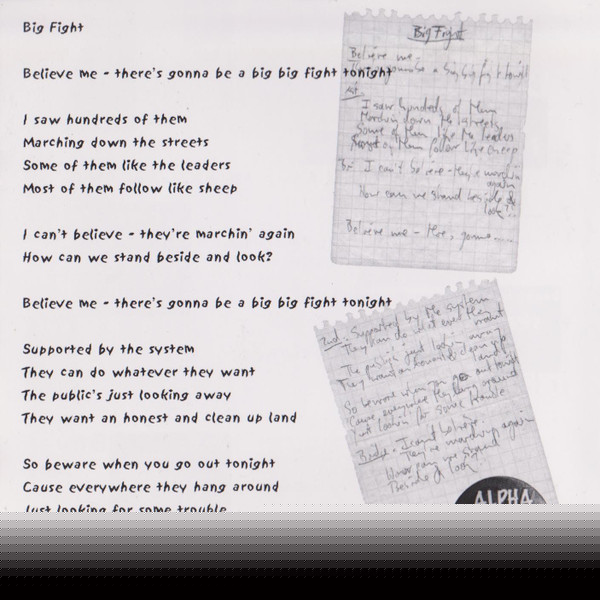 Big Fight
Believe me - there's gonna be a big big fight tonight
I saw hundreds of them
Marching down the streets
Some of them like the leaders
Most of them follow like sheep
I can't believe - they're marchin' again
How can we stand beside and look?
Believe me - there's gonna be a big big fight tonight
Supported by the system
They can do whatever they want
The public's just looking away
They want an honest and clean up land
So beware when you go out tonight
Cause everywhere they hang around
Just looking for some trouble
Big Fight
Believe me
I saw hundreds of them
Marching down the streets
Some of them like the leaders
Most of them follow like sheep
I can't believe - they're marchin
again
How can we stand beside &
look?
Believe me - there, gonna
2nd. Supported by the system
They can do whatever they want
The public's just looking away
They want an honest & clean up
land
So beware when you go out tonight
Cause everywhere they hang around
Just lookin' for some trouble
I can't believe
They're marching again
How can we stand
Beside & look
ALPHA